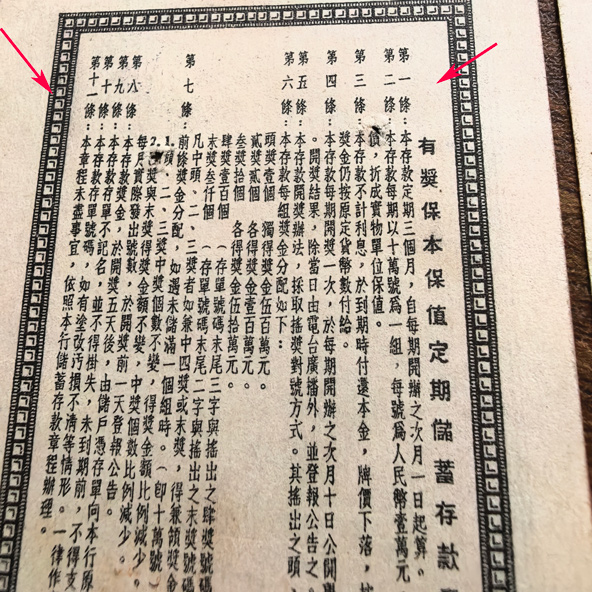 有獎保本保值定期儲蓄存款
第一條:本存款定期三個月,自每期開辦之次月一日起算。
第二條:本存款每期以十萬號爲一組,每號爲人民幣壹萬元
,折成實物單位保值。
第三條:本存款不計利息,於到期時付還本金,牌價下落,
獎金仍按原定貨幣數付給。
第四條:本存款每期開獎一次,於每期開辦之次月十日公開
。開獎結果,除當日由電台廣播外,並登報公告之。
第五條:本存款開獎辦法,採取搖獎對號方式。其搖出之頭、
第六條:本存款每組獎金分配如下:
頭獎壹個 獨得獎金伍百萬元。
貳獎貳個 各得獎金壹百萬元。
叁獎拾個 各得獎金伍拾萬元。
肆獎壹百個 (存單號碼末尾三字與搖出之肆獎號碼
末獎叁仟個 (存單號碼末尾二字與搖出之末獎號碼
凡中頭、二、三獎者如兼中四獎或末獎,得兼領獎金
第七條:前條獎金分配,如遇未儲滿一個組時。(卽十萬號)
1.頭、二、三獎中獎個數不變,得獎金額比例減少。
2.獎與末獎得獎金額不變,中獎個數比例減少。
每月實際發出號數,於開獎前一天登報公告。
第八條:本存款獎金,於開獎五天後,由儲戶憑存單向本行原
第九條:本存款存單不記名,並不得掛失,未到期前,不得支
第十條:本存款存單號碼,如有塗改汚損不清等情形。一律作
第十一條:本章程未盡事宜,依照本行儲蓄存款章程辦理。